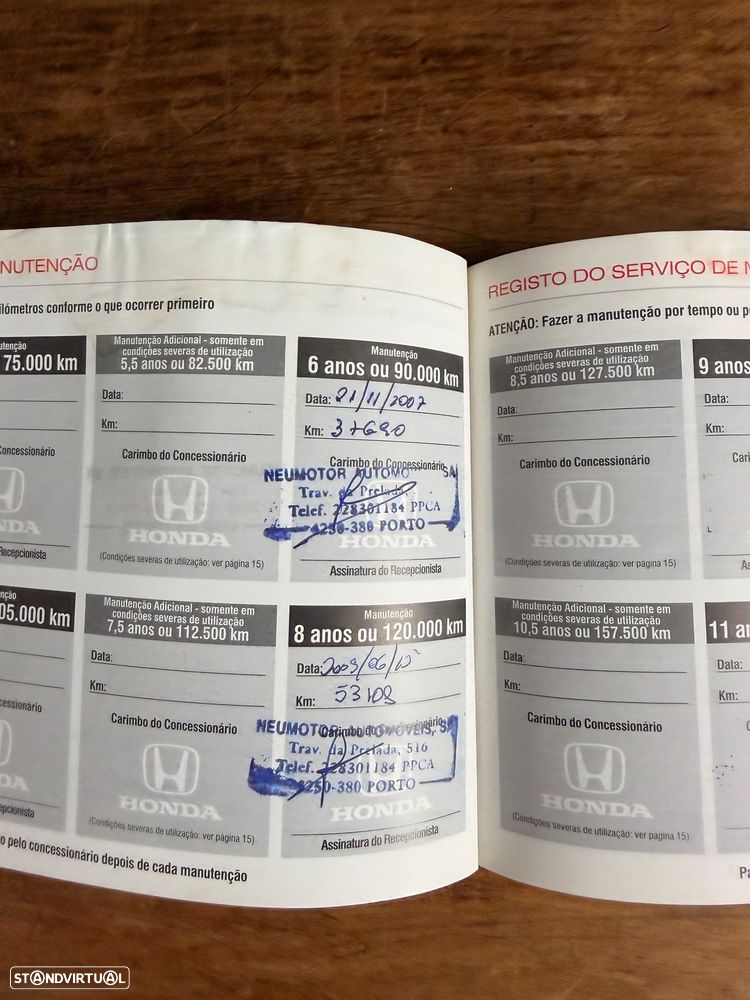 NUTENÇÃO
ilómetros conforme o que ocorrer primeiro
utenção
75.000 km
Concessionário
NDA
Recepcionista
Manutenção Adicional - somente em
condições severas de utilização
5,5 anos ou 82.500 km
Data:
Km:
Carimbo do Concessionário
HONDA
(Condições severas de utilização: ver página 15)
Manutenção
6 anos ou 90.000 km
Data: 21/11/2007
Km: 37690
Carimbo do Concessionário
NEUMOTOR AUTOMO SA
Trav. da Prelada,
Telef. 228301184 PPCA
4250-380 PORTO
HONDA
Assinatura do Recepcionista
nção
05.000 km
cessionário
DA
pcionista
Manutenção Adicional - somente em
condições severas de utilização
7,5 anos ou 112.500 km
Data:
Km:
Carimbo do Concessionário
HONDA
(Condições severas de utilização: ver página 15)
Manutenção
8 anos ou 120.000 km
Data: 2009/06/15
Km: 53109
Carimbo do Concessionário
NEUMOTOR AUTOMOVEIS, SA
Trav. da Prelada, 516
Telef. 228301184 PPCA
4250-380 PORTO
HONDA
Assinatura do Recepcionista
o pelo concessionário depois de cada manutenção
REGISTO DO SERVIÇO DE M
ATENÇÃO: Fazer a manutenção por tempo ou
Manutenção Adicional - somente em
condições severas de utilização
8,5 anos ou 127.500 km
Data:
Km:
Carimbo do Concessionário
HONDA
(Condições severas de utilização: ver página 15)
9 anos
Data:
Km:
Cari
As
Manutenção Adicional - somente em
condições severas de utilização
10,5 anos ou 157.500 km
Data:
Km:
Carimbo do Concessionário
HONDA
(Condições severas de utilização: ver página 15)
11 an
Data:
Km:
C
Pa
STANDVIRTUAL